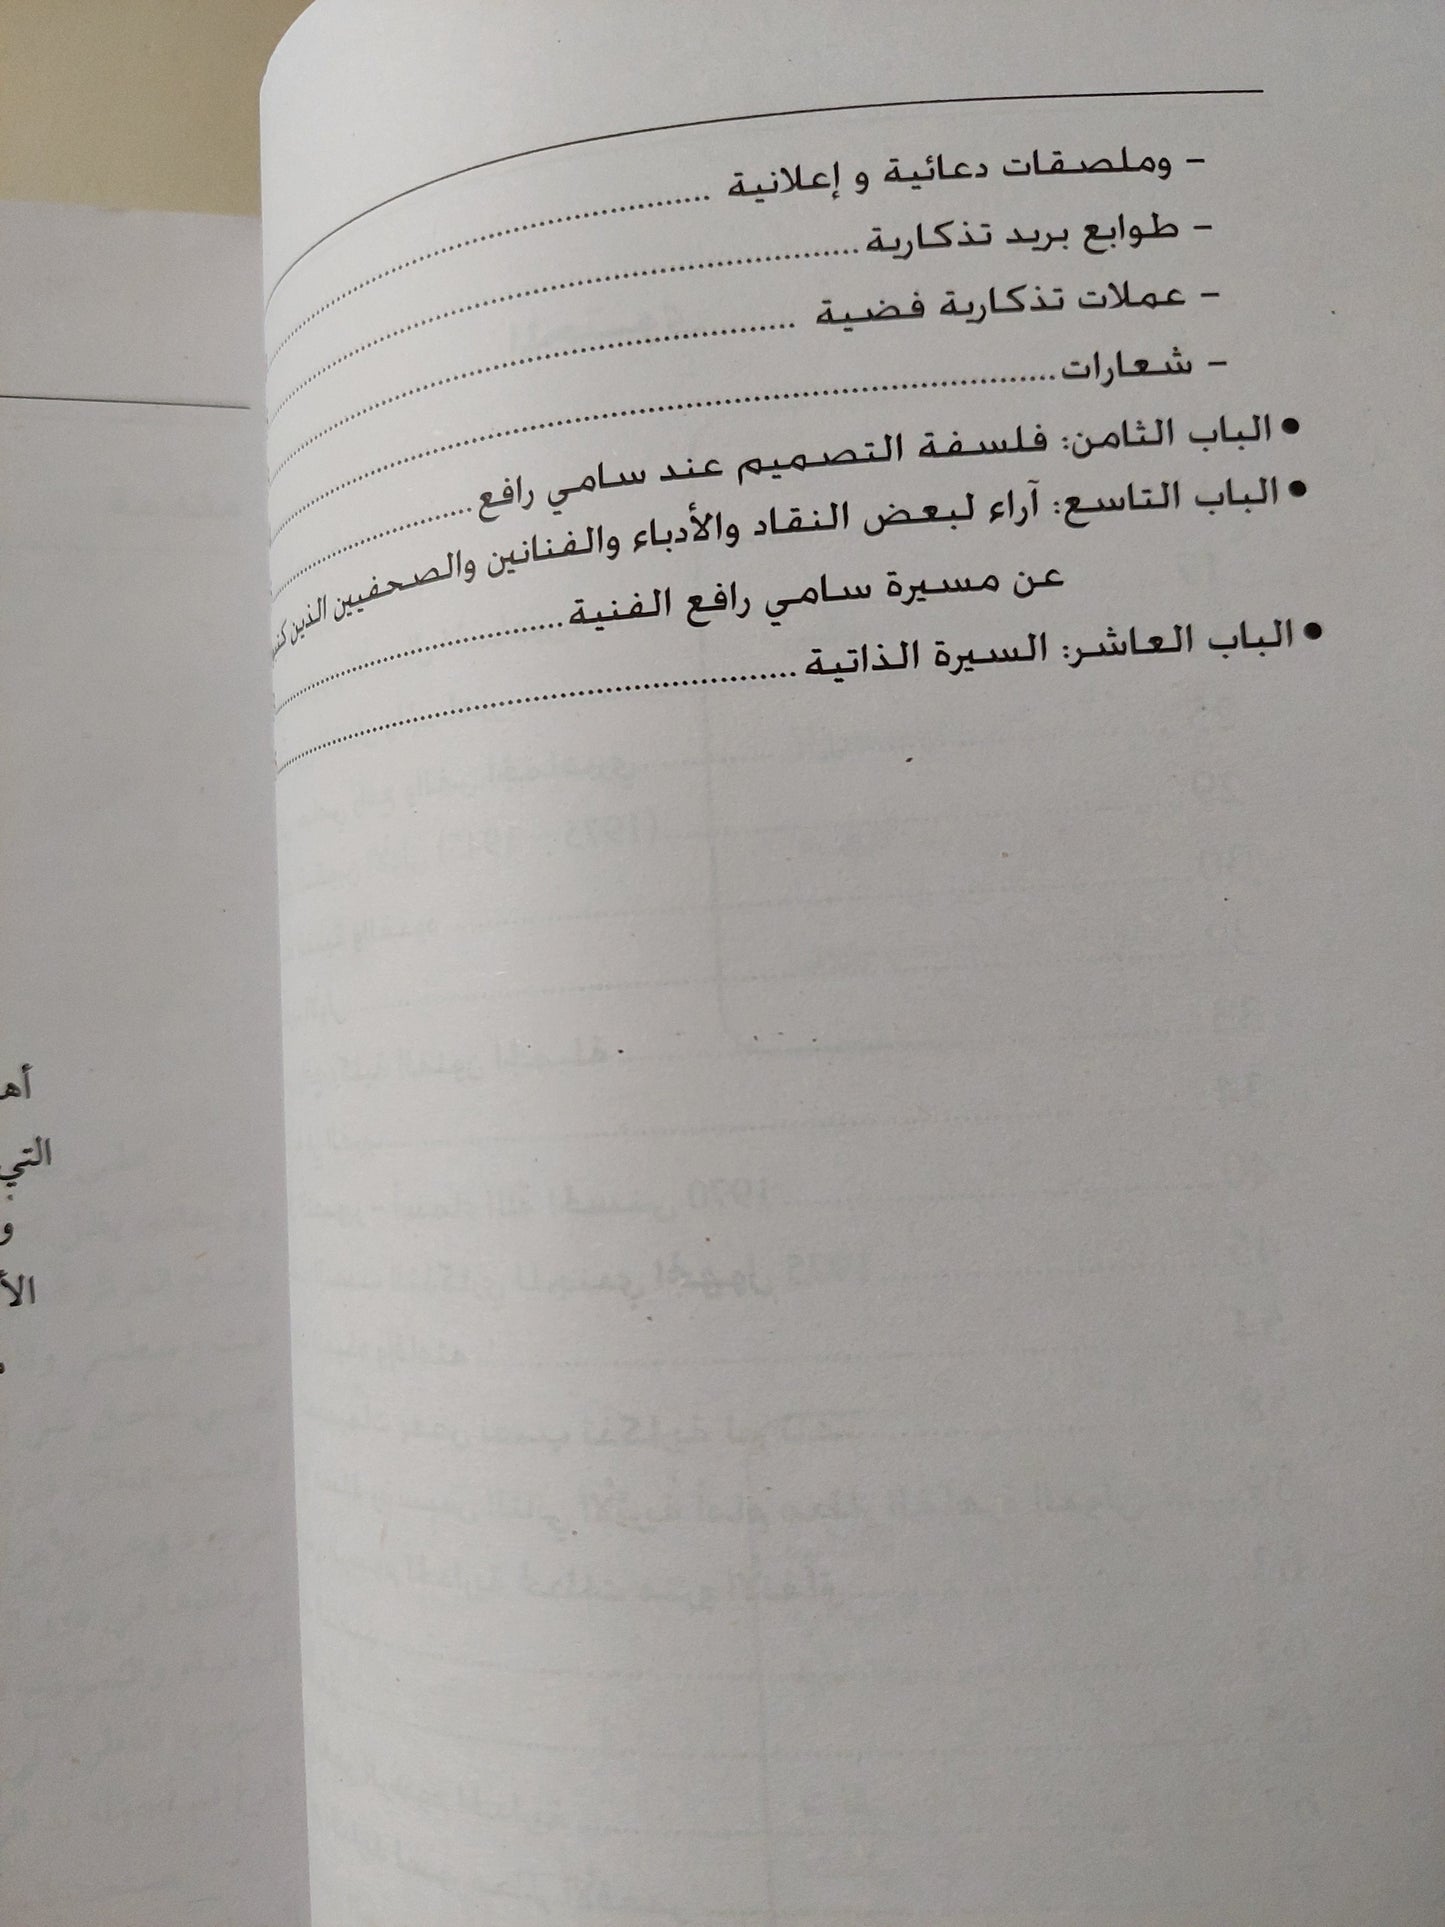 - وملصقات دعائية و إعلانية ..........
- طوابع بريد تذكارية ..........
- عملات تذكارية فضية ..........
- شعارات ..........
• الباب الثامن: فلسفة التصميم عند سامي رافع ..........
• الباب التاسع: آراء لبعض النقاد والأدباء والفنانين والصحفيين الذين
عن مسيرة سامي رافع الفنية ..........
• الباب العاشر: السيرة الذاتية ..........
التي
و